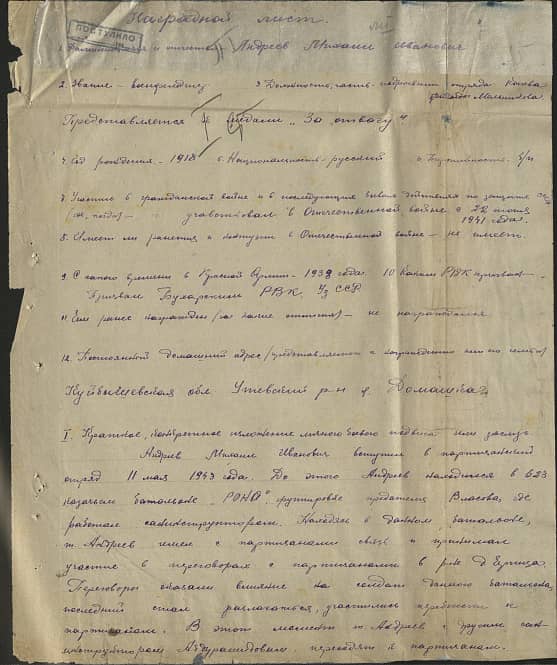 Наградной лист.
ПОСТУПИЛО
1. Фамилия, имя и отчество Андреев Михаил Иванович
2. Звание – военфельдшер 3. Должность, часть – подрывник отряда
Представляется к медали „За отвагу"
4. Год рождения – 1918 5. Национальность – русский 6. Партийность – б/п
7. Участие в гражданской войне и в последующих боевых действиях по защите СССР
участвовал в Отечественной войне с июня
1941 года.
8. Имеет ли ранения и контузии в Отечественной войне – не имеет.
9. С какого времени в Красной Армии – 1939 года. 10 Каким РВК призван –
Призван Бухарским РВК. УзССР
11. Чем ранее награжден /за какие отличия/ – не награждался
12. Постоянный домашний адрес /представляемого к награждению или его семьи/
Куйбышевская обл. Утевский р-н д. Домашка
I. Краткое, конкретное изложение личного боевого подвига или заслуг
Андреев Михаил Иванович вступил в партизанский
отряд 11 мая 1943 года. До этого Андреев находился в 623
казачьем батальоне „РОНА" группировке предателя Власова, где
работал санинструктором. Находясь в данном батальоне,
т. Андреев имел с партизанами связь и принимал
участие в переговорах с партизанами в р-не д.
Переговоры оказали влияние на солдат данного батальона,
последний стал разлагаться, участились перебежки к
партизанам. В этот момент т. Андреев с другим сан-
инструктором Абдурашидовым переходят к партизанам.